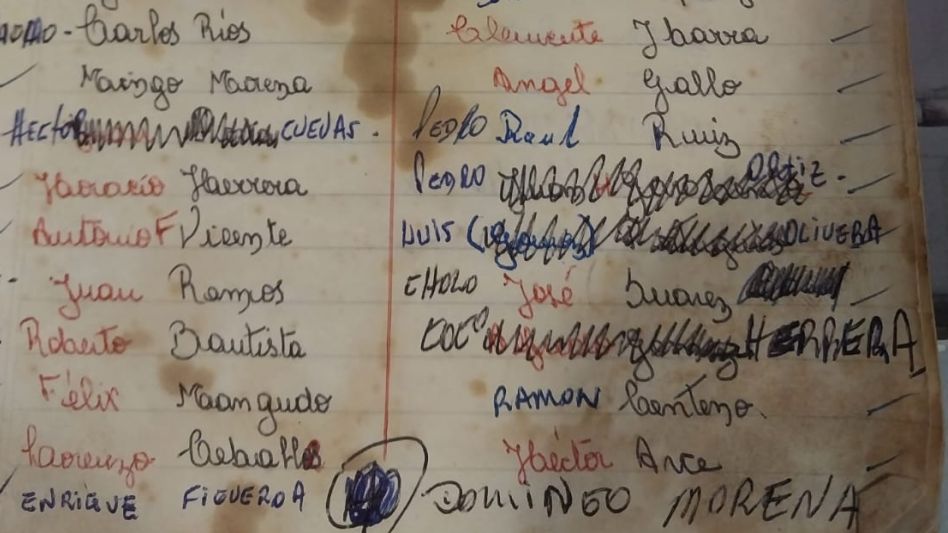 Carlos Ríos
Maingo Morena
HECTOR CUEVAS.
Horacio Herrera
Antonio F Vicente
Juan Ramos
Roberto Bautista
Félix Maongudo
Lorenzo
ENRIQUE FIGUEROA
Clemente Ibarra
Angel Gallo
PEDRO Raul Ruiz
PEDRO ORTIZ.
LUIS OLIVERA
CHOLO José Suarez
COCO HERRERA
RAMON Centeno.
Héctor Arce
DOMINGO MORENA